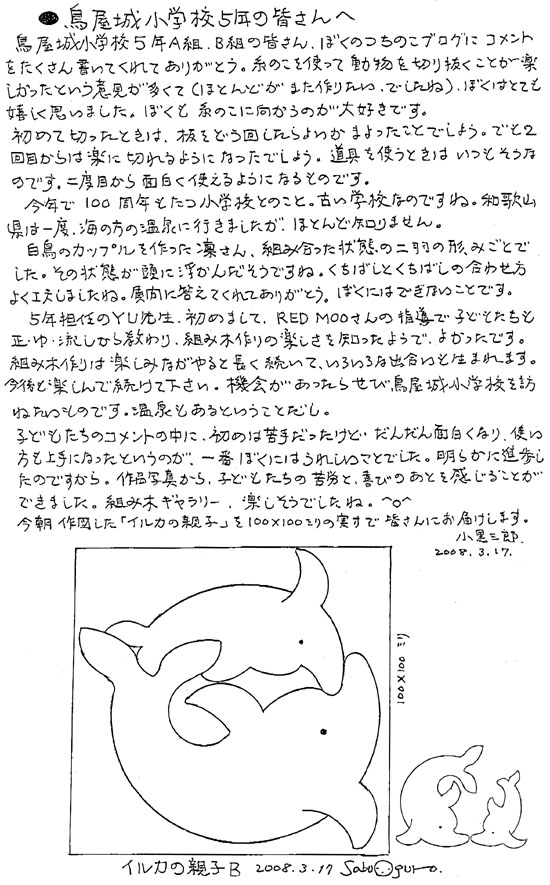 ●鳥屋城小学校5年の皆さんへ
鳥屋城小学校5年A組、B組の皆さん、ぼくのつちのこブログにコメント
をたくさん書いてくれてありがとう。糸のこを使って動物を切り抜くことが楽
しかったという意見が多くて(ほとんどが また作りたい、でしたね)、ぼくはとても
嬉しく思いました。ぼくも 糸のこに向かうのが大好きです。
初めて切ったときは、板をどう回したらよいか まよったことでしょう。でも2
回目からは楽に切れるようになったでしょう。道具を使うときは いつもそうな
のです。二度目から面白く使えるようになるものです。
今年で100周年もたつ小学校とのこと。古い学校なのですね。和歌山
県は一度、海の方の温泉に行きましたが、ほとんど知りません。
白鳥のカップルを作った凛さん、組み合った状態の二羽の形、みごとで
した。その状態が頭に浮かんだそうですね。くちばしとくちばしの合わせ方
よく工夫しましたね。質問に答えてくれてありがとう。ぼくにはできないことです。
5年担任のYU先生、初めまして、RED MOOさんの指導で子どもたちも
正・ゆ・流しから教わり、組み木作りの楽しさを知ったようで、よかったです。
組み木作りは楽しみながやると長く続いて、いろいろな出合いも生まれます。
今後も楽しんで続けて下さい。機会があったらぜひ鳥屋城小学校を訪
ねたいものです。温泉もあるということだし。
子どもたちのコメントの中に、初めは苦手だったけど だんだん面白くなり、使い
方も上手になったというのが、一番ぼくにはうれしいことでした。明らかに進歩し
たのですから。作品写真から、子どもたちの苦労と、喜びのあとを感じることが
できました。組み木ギャラリー、楽しそうでしたね。^o^
今朝作図した「イルカの親子」を100×100ミリの実寸で皆さんにお届けします。
小黒三郎.
2008.3.17.
100×100ミリ
イルカの親子B 2008.3.17 Saburo Oguro.